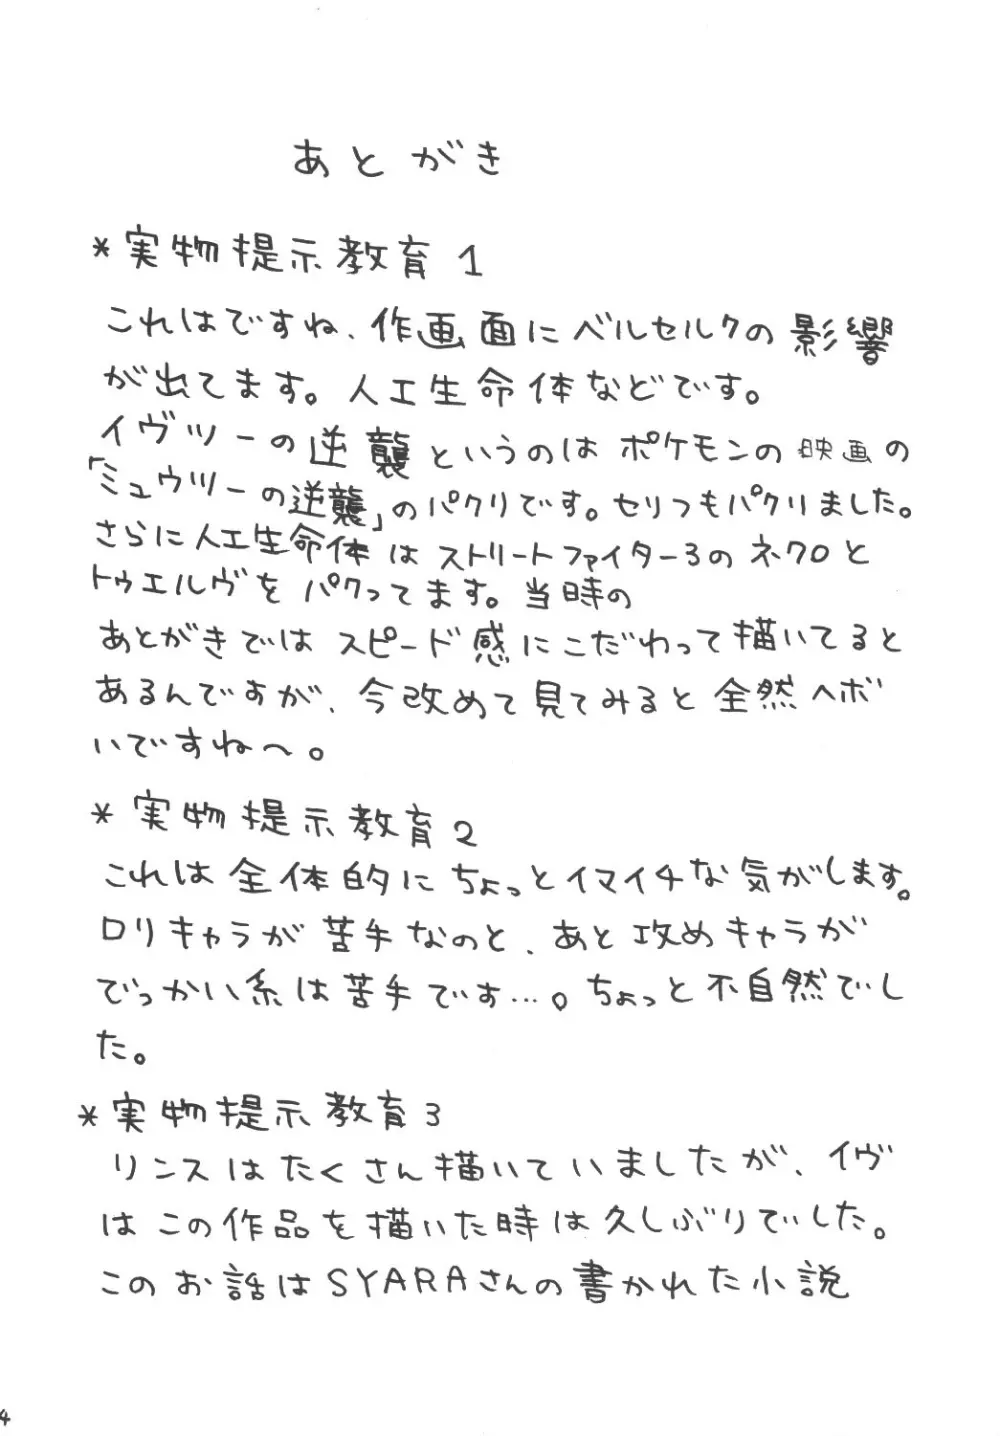 あとがき
*実物提示教育1
これはですね、作画面にベルセルクの影響
が出てます。人工生命体などです。
イヴツーの逆襲というのはポケモンの映画の
「ミュウツーの逆襲」のパクリです。セリフもパクりました。
さらに人工生命体はストリートファイター3のネクロと
トゥエルヴをパクってます。当時の
あとがきではスピード感にこだわって描いてると
あるんですが、今改めて見てみると全然ヘボ
いですね〜。
*実物提示教育2
これは全体的にちょっとイマイチな気がします。
ロリキャラが苦手なのと、あと攻めキャラが
でっかい系は苦手です…。ちょっと不自然でし
た。
*実物提示教育3
リンスはたくさん描いていましたが、イヴ
はこの作品を描いた時は久しぶりでした。
このお話はSYARAさんの書かれた小説
4